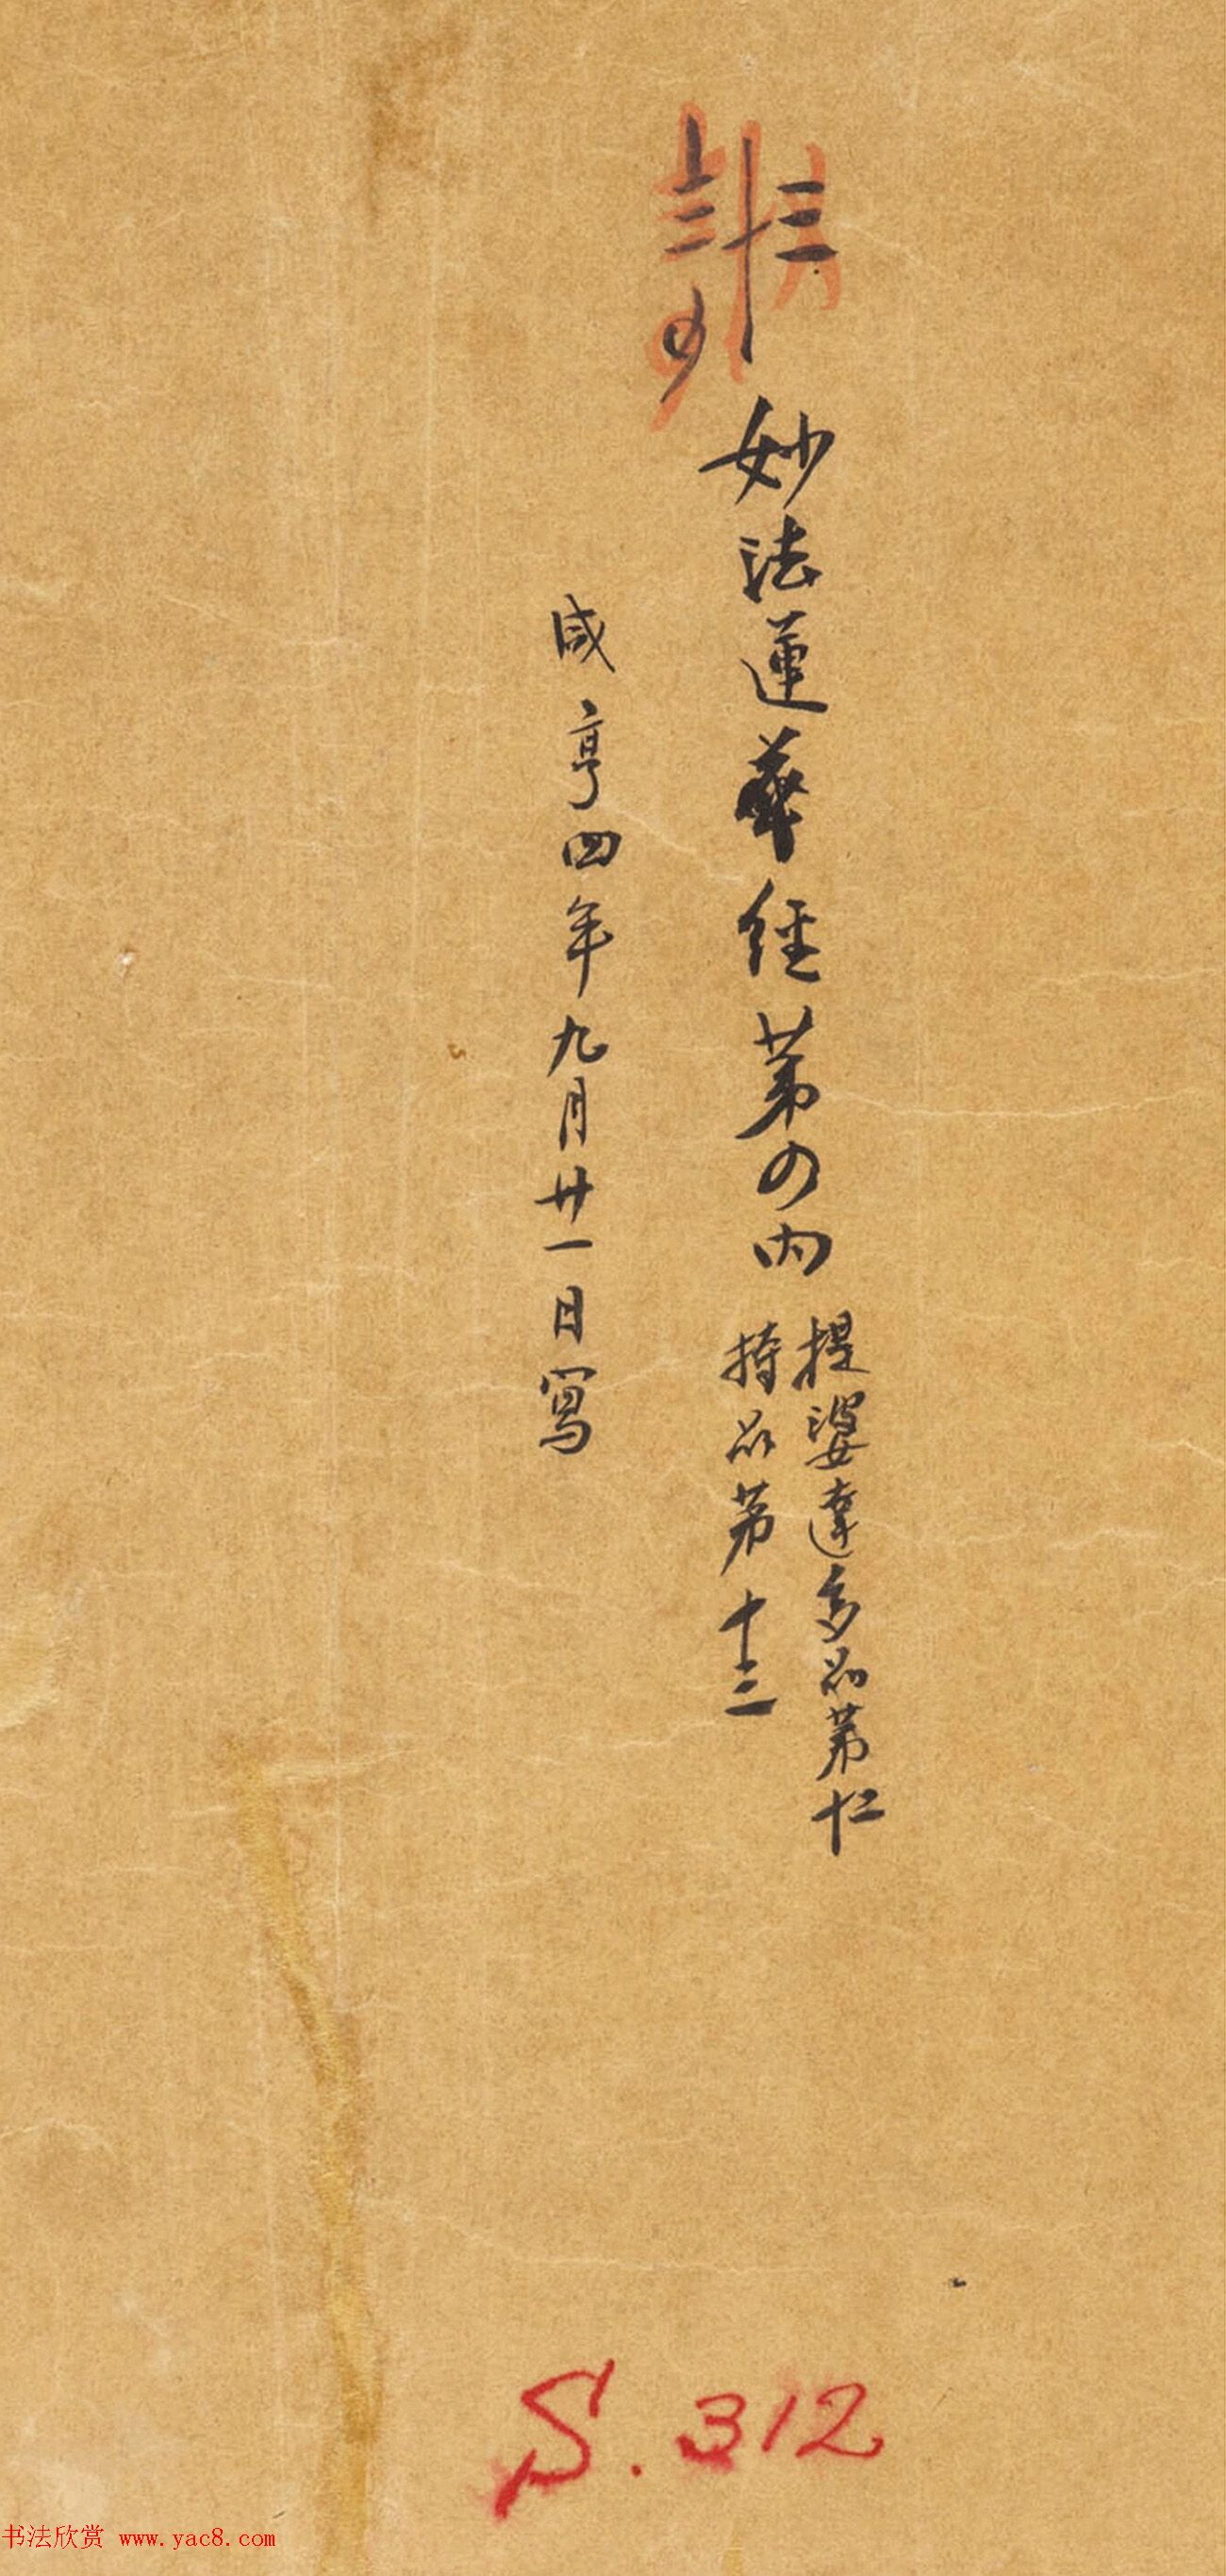 妙法蓮華經第四內
提婆達多品第十二
持品第十三
咸亨四年九月廿一日寫
S. 312
书法欣赏 www.yac8.com